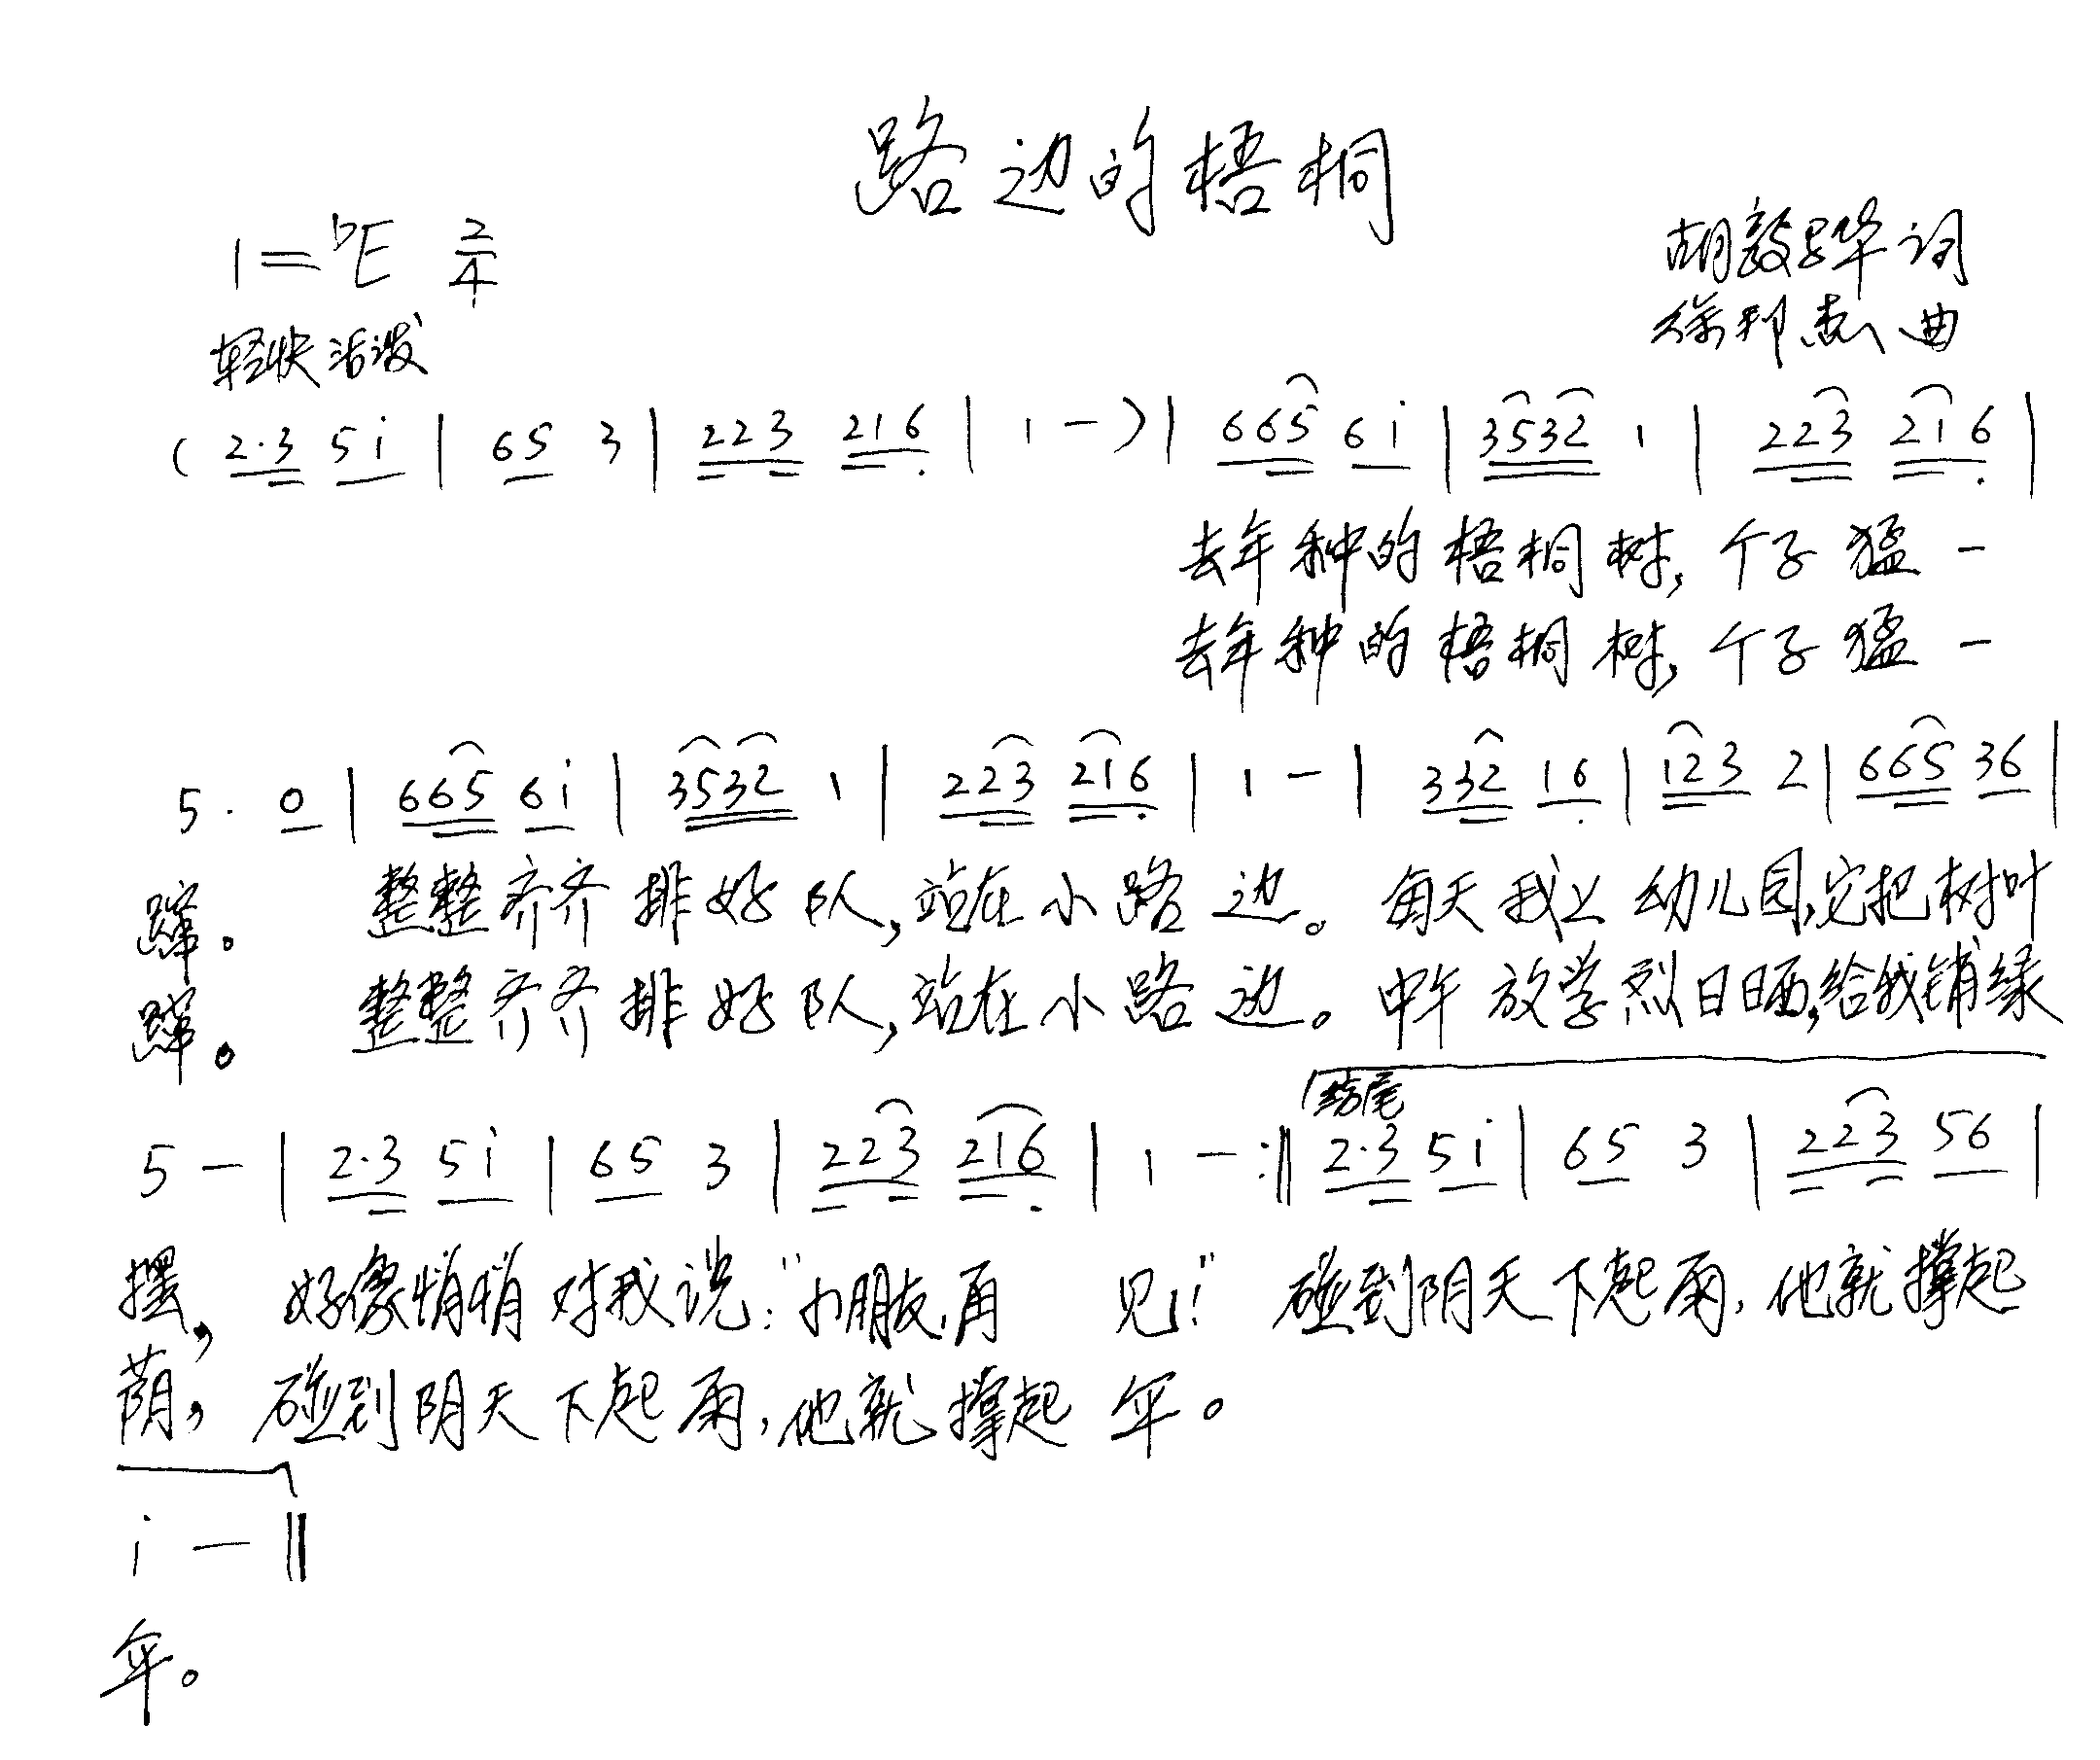 路边的梧桐
1=♭E 2/4
胡敦骅 词
轻快活泼
徐邦杰 曲
( 2·3 5 i | 6 5 3 | 2 2 3 2 1 6 | 1 - ) | 6 6 5 6 i | 3 5 3 2 1 | 2 2 3 2 1 6 |
去年种的梧桐树, 个子猛一
去年种的梧桐树, 个子猛一
5· 0 | 6 6 5 6 i | 3 5 3 2 1 | 2 2 3 2 1 6 | 1 - | 3 3 2 1 6 | 1 2 3 2 | 6 6 5 3 6 |
蹿。 整整齐齐排好队,站在小路边。每天我上幼儿园,它把树叶
蹿。 整整齐齐排好队,站在小路边。中午放学烈日晒,给我铺绿
结尾
5 - | 2·3 5 i | 6 5 3 | 2 2 3 2 1 6 | 1 - :‖ 2·3 5 i | 6 5 3 | 2 2 3 5 6 |
摆, 好像悄悄对我说:"小朋友,再 见!" 碰到阴天下起雨,他就撑起
荫, 碰到阴天下起雨,他就撑起伞。
i - ‖
伞。